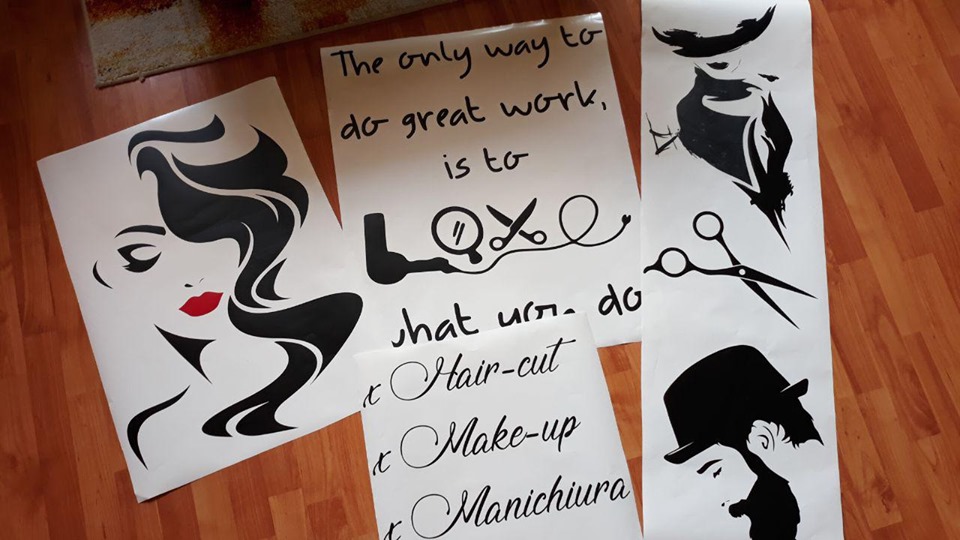 The only way to
do great work,
is to
what you do
x Hair-cut
x Make-up
x Manichiura